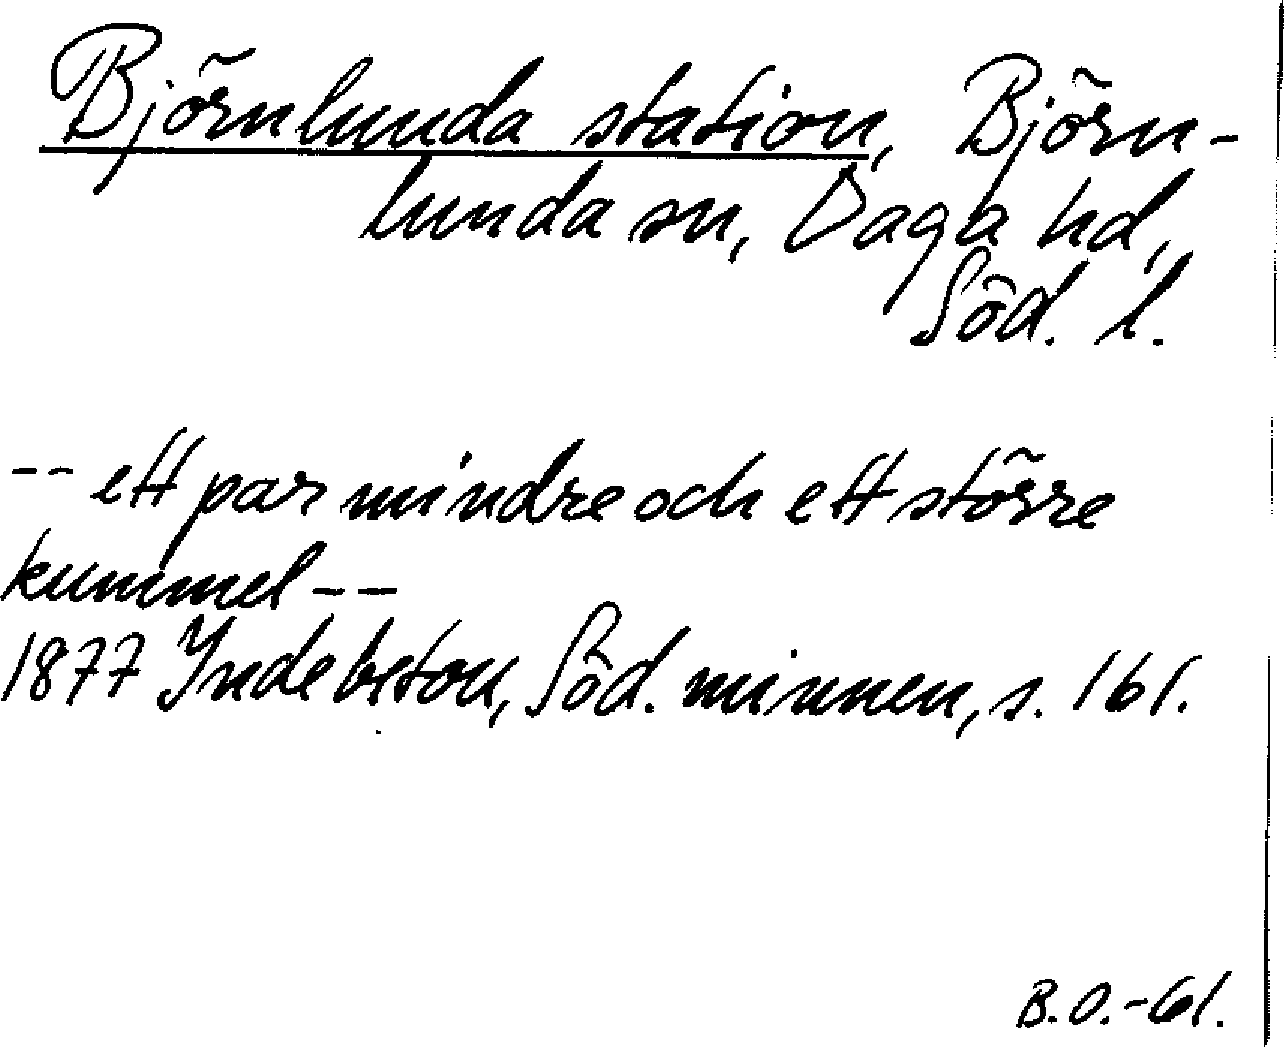 Björnlunda station, Björn-
lunda sn, Daga hd,
Söd. l.
-- ett par mindre och ett större
kummel --
1877 Indebetou, Söd. minnen, s. 161.
B.O.-61.